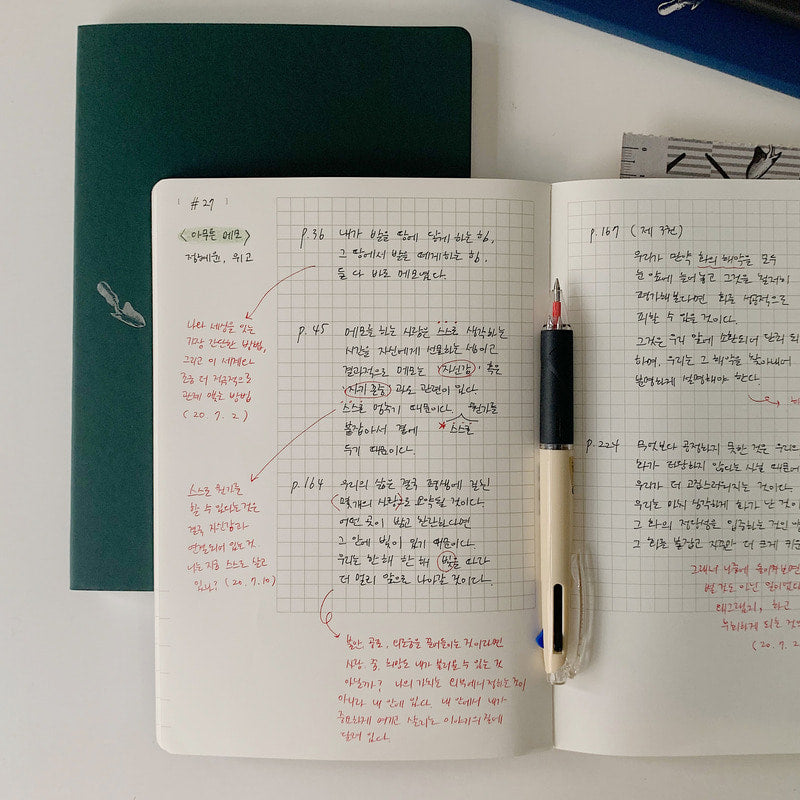 #27
<아무튼 메모>
정혜윤, 위고
p.36 내가 발을 땅에 닿게 하는 힘,
그 땅에서 발을 떼게 하는 힘,
둘 다 바로 메모였다.
나와 세상을 잇는
가장 간단한 방법,
그리고 이 세계와
좀 더 적극적으로
관계 맺는 방법
(20.7.2)
p.45 메모를 하는 사람은 스스로 생각하는
시간을 자신에게 선물하는 셈이고
결과적으로 메모는 '자신감' 혹은
'자기 존중'과도 관련이 있다.
스스로 멈추기 때문이다. 뭔가를
붙잡아서 곁에 * 스스로
두기 때문이다.
스스로 뭔가를
할 수 있다는 것은
결국 자신감과
연결되어 있는 것.
나는 지금 스스로 살고
있나? (20.7.10)
p.164 우리의 삶은 결국 평생에 걸친
몇 개의 사랑으로 요약될 것이다.
어떤 곳이 밝고 찬란하다면
그 안에 빛이 있기 때문이다.
우리는 한 해 한 해 빛을 따라
더 멀리 앞으로 나아갈 것이다.
불안, 공포, 외로움을 끌어들이는 것이라면
사랑, 꿈, 희망도 내가 불러올 수 있는 것
아닐까? 나의 가치는 외부에서 정하는 것이
아니라 내 안에 있다. 내 안에서 내가
중요하게 여기고 살리는 이야기의 질에
달려 있다.
p.167 (제 3권)
우리가 만약 화의 해악을 모두
눈 앞에 늘어놓고 그것을 철저히
평가해본다면 화를 성공적으로
피할 수 있을 것이다.
그것은 우리 앞에 소환되어 단죄 되
하며, 우리는 그 해악을 찾아내어
분명하게 설명해야 한다.
p.224 무엇보다 공정하지 못한 것은 우리의
화가 타당하지 않다는 사실 때문에
우리가 더 고집스러워지는 것이다.
우리는 마치 심각하게 화가 난 것이
그 화의 정당성을 입증하는 것인 양
그 화를 붙잡고 지금만 더 크게 키운
그래서 나중에 돌이켜보면
별 것도 아닌 일이었다
왜그랬지, 하고
후회하게 되는 것
(20.7.2